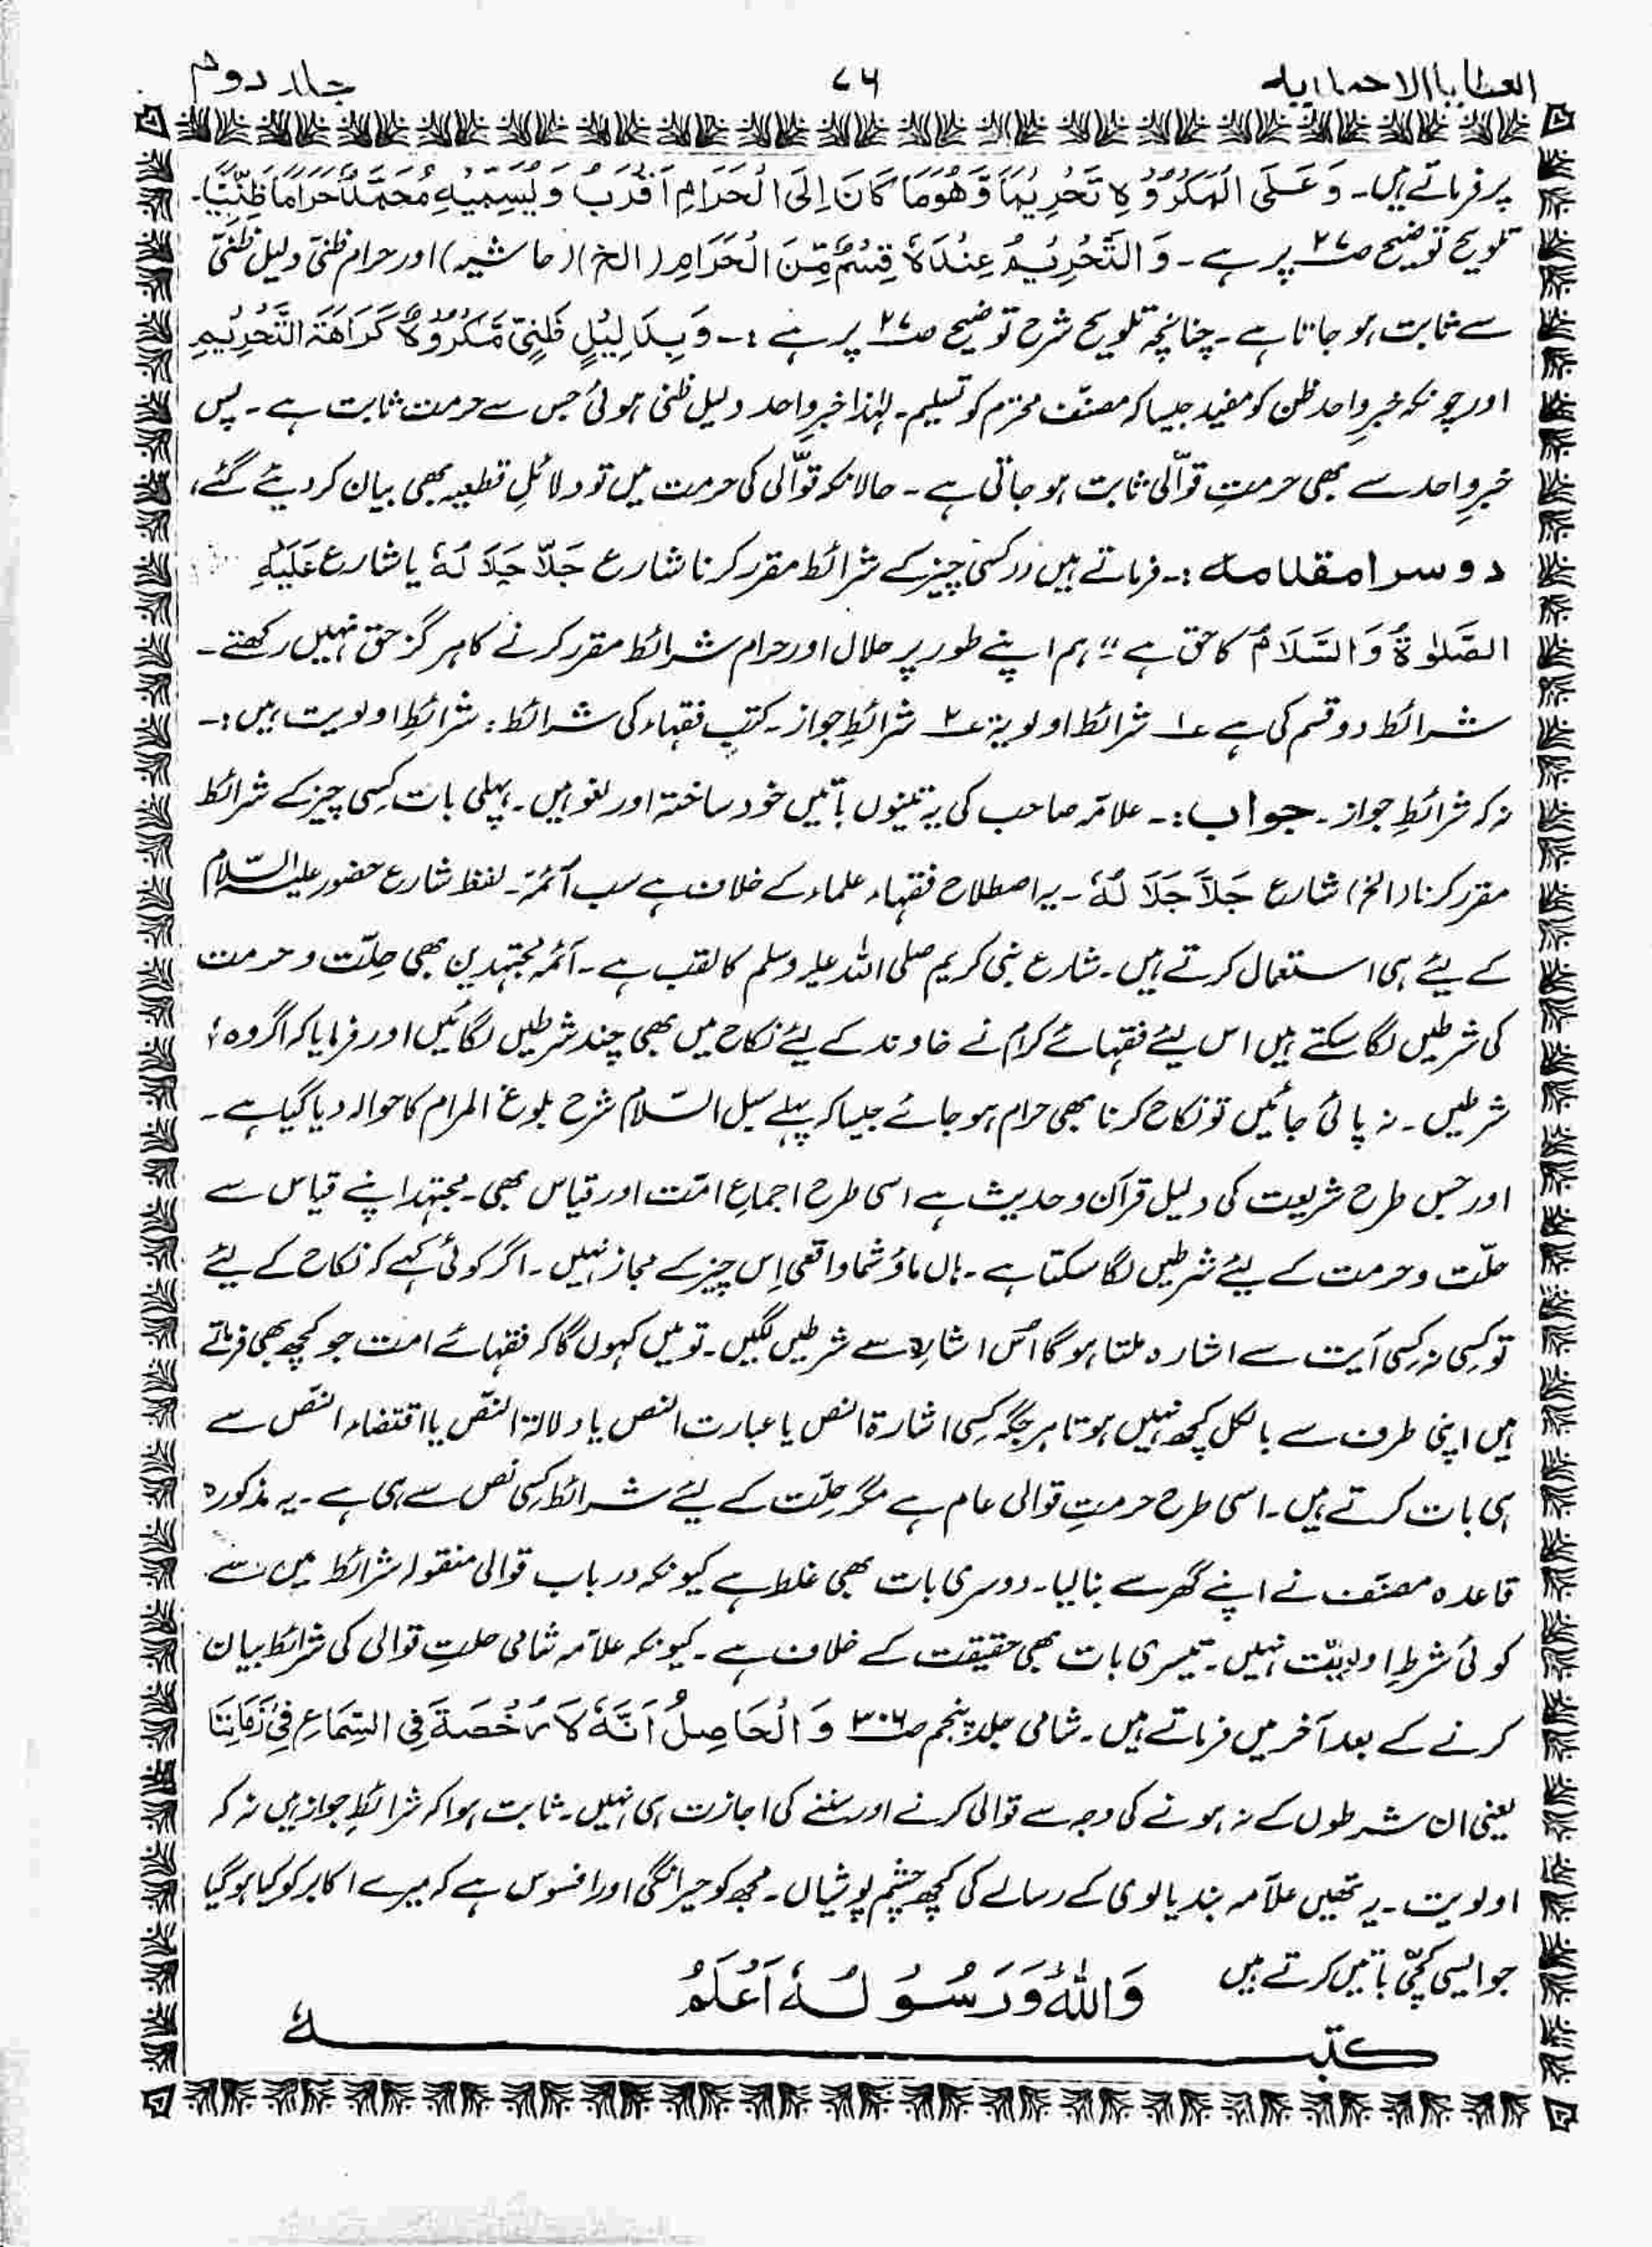 العطایا الاحمدیہ ۷۶ جلد دوم
پر فرماتے ہیں۔ وَعَلَى الْمَكْرُوْهِ تَحْرِيْمًا وَّهُوَ مَا كَانَ اِلَى الْحَرَامِ اَقْرَبُ وَيُسَمِّيْهِ مُحَمَّدٌ حَرَامًا ظَنِّيًّا۔
تلویح توضیح صـ۲۷ پر ہے۔ وَالتَّحْرِيْمُ عِنْدَهٗ قِسْمٌ مِّنَ الْحَرَامِ (الخ) (حاشیہ) اور حرام ظنی دلیل ظنی
سے ثابت ہو جاتا ہے۔ چنانچہ تلویح شرح توضیح صـ۲۷ پر ہے :۔ وَبِدَلِيْلٍ ظَنِّيٍّ مَّكْرُوْهٌ كَرَاهَةَ التَّحْرِيْمِ
اور چونکہ خبرِ واحد ظن کو مفید جیسا کہ مصنّف محترم کو تسلیم۔ لہٰذا خبرِ واحد دلیل ظنی ہوئی جس سے حرمت ثابت ہے۔ پس
خبرِ واحد سے بھی حرمتِ قوّالی ثابت ہو جاتی ہے۔ حالانکہ قوّالی کی حرمت میں تو دلائلِ قطعیہ بھی بیان کر دیئے گئے،
دوسرا مقدمہ :۔ فرماتے ہیں ''کسی چیز کے شرائط مقرر کرنا شارع جَلَّ جَلَالَهٗ یا شارع عَلَيْهِ
الصَّلٰوةُ وَالسَّلَامُ کا حق ہے'' ہم اپنے طور پر حلال اور حرام شرائط مقرر کرنے کا ہر گز حق نہیں رکھتے۔
شرائط دو قسم کی ہے ۱؎ شرائط اولویۃ ۲؎ شرائطِ جواز۔ کتبِ فقہاء کی شرائط : شرائطِ اولویت ہیں :۔
نہ کہ شرائطِ جواز۔ جواب :۔ علامہ صاحب کی یہ تینوں باتیں خود ساختہ اور لغو ہیں۔ پہلی بات کسِی چیز کے شرائط
مقرر کرنا (الخ) شارع جَلَّ جَلَالَهٗ۔ یہ اصطلاح فقہاء علماء کے خلاف ہے سب آئمّہ۔ لفظ شارع حضور علیہ السّلام
کے لیئے ہی استعمال کرتے ہیں۔ شارع نبی کریم صلی اللہ علیہ وسلم کا لقب ہے۔ آئمہ مجتہدین بھی حِلّت و حرمت
کی شرطیں لگا سکتے ہیں اس لیئے فقہائے کرام نے خاوند کے لیئے نکاح میں بھی چند شرطیں لگائیں اور فرمایا کہ اگر وہ؛
شرطیں۔ نہ پائی جائیں تو نکاح کرنا بھی حرام ہو جائے جیسا کہ پہلے سبل السّلام شرح بلوغ المرام کا حوالہ دیا گیا ہے۔
اور جس طرح شریعت کی دلیل قرآن و حدیث ہے اسی طرح اجماعِ امّت اور قیاس بھی۔ مجتہد اپنے قیاس سے
حلّت و حرمت کے لیئے شرطیں لگا سکتا ہے۔ ہاں ماؤشما واقعی اِس چیز کے مجاز نہیں۔ اگر کوئی کہے کہ نکاح کے لیئے
تو کسِی نہ کسِی آیت سے اشارہ ملتا ہوگا اُس اشارہ سے شرطیں لگیں۔ تو میں کہوں گا کہ فقہائے امت جو کچھ بھی فرماتے
ہیں اپنی طرف سے بالکل کچھ نہیں ہوتا ہر جگہ کسِی اشارۃ النص یا عبارت النص یا دلالۃ النّص یا اقتضاء النّص سے
ہی بات کرتے ہیں۔ اسی طرح حرمتِ قوالی عام ہے مگر حِلّت کے لیئے شرائط کسِی نص سے ہی ہے۔ یہ مذکورہ
قاعدہ مصنّف نے اپنے گھر سے بنالیا۔ دوسری بات بھی غلط ہے کیونکہ در باب قوالی منقولہ شرائط میں سے
کوئی شرطِ اولویّت نہیں۔ تیسری بات بھی حقیقت کے خلاف ہے۔ کیونکہ علّامہ شامی حلتِ قوالی کی شرائط بیان
کرنے کے بعد آخر میں فرماتے ہیں۔ شامی جلد پنجم صـ۳۰۶ وَالْحَاصِلُ اَنَّهٗ لَا رُخْصَةَ فِى السِّمَاعِ فِيْ زَمَانِنَا
یعنی ان شرطوں کے نہ ہونے کی وجہ سے قوالی کرنے اور سننے کی اجازت ہی نہیں۔ ثابت ہوا کہ شرائطِ جواز ہیں نہ کہ
اولویت۔ یہ تھیں علّامہ بندیالوی کے رسالے کی کچھ چشم پوشیاں۔ مجھ کو حیرانگی اور افسوس ہے کہ میرے اکابر کو کیا ہو گیا
جو ایسی کچّی باتیں کرتے ہیں وَاللّٰهُ وَرَسُوْلُهٗ اَعْلَمُ
کتبــــــــــــــہٗ